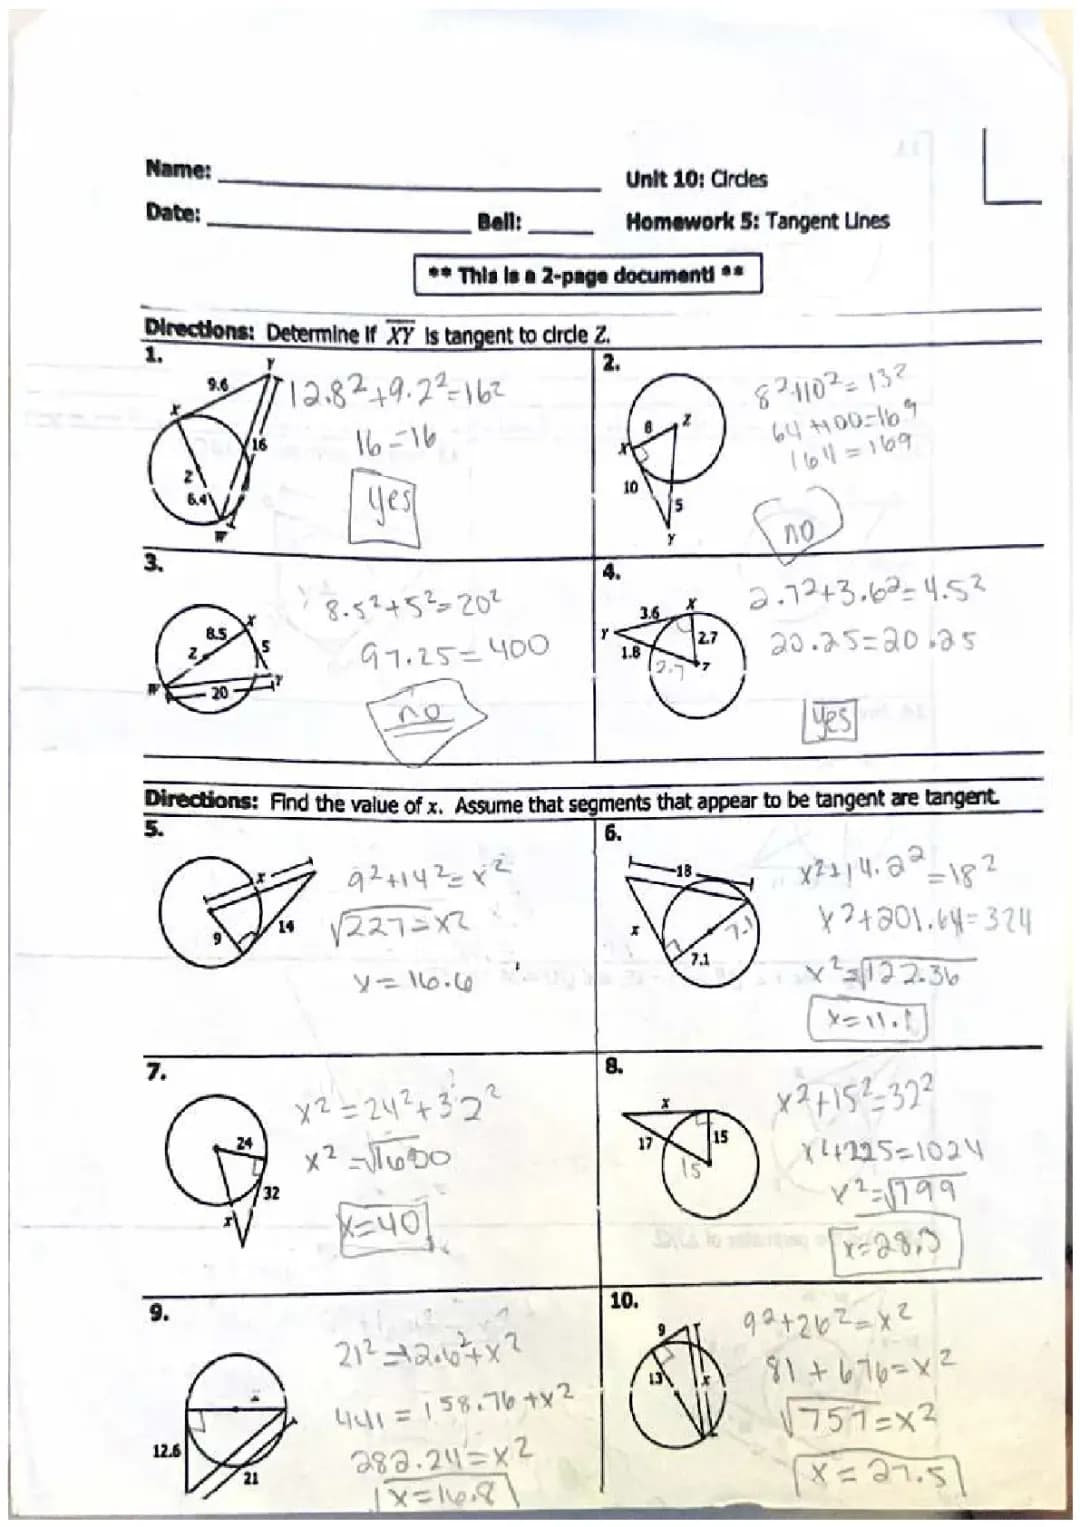 Name:
Unit 10: Circles
Date:
Bell:
Homework 5: Tangent Lines
** This is a 2-page document! **
Directions: Determine if XY is tangent to circle Z.
1.
Y
9.6
X
16
Z
6.4
W
12.8²+9.2²=16²
16=16
yes
2.
8
Z
X
10
5
Y
8²+10²=13²
64+100=169
164=169
no
3.
8.5
X
Z
5
W
20
Y
8.5²+5²=20²
97.25=400
no
4.
3.6
X
Y
2.7
1.8
2.7
Z
2.7²+3.6²=4.5²
20.25=20.25
yes
Directions: Find the value of x. Assume that segments that appear to be tangent are tangent.
5.
x
14
9
9²+14²=x²
√227=x²
x=16.6
6.
18
x
7.1
7.1
x²+14.2²=18²
x²+201.64=324
x²=√122.36
x=11.1
7.
24
32
x
x²=24²+32²
x²=√1600
x=40
8.
x
17
15
15
x²+15²=32²
x²+225=1024
x²=√799
x=28.3
9.
12.6
21
21²=12.6²+x²
441=158.76+x²
282.24=x²
x=16.8
10.
9
13
x
9²+26²=x²
81+676=x²
√757=x²
x=27.5